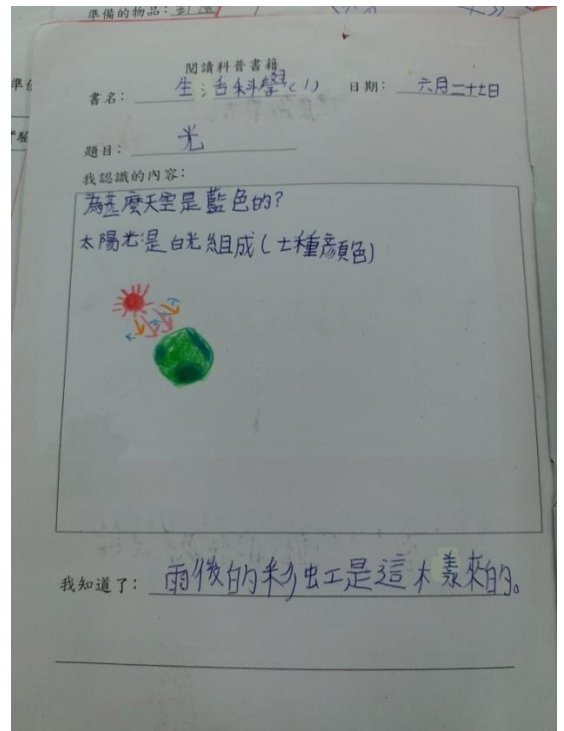 準備的物品：
閱讀科普書籍
書名： 生活科學(1) 日期： 六月二十七日
題目： 光
我認識的內容：
為甚麼天空是藍色的?
太陽光是白光組成(七種顏色)
我知道了： 雨後的彩虹是這樣來的。